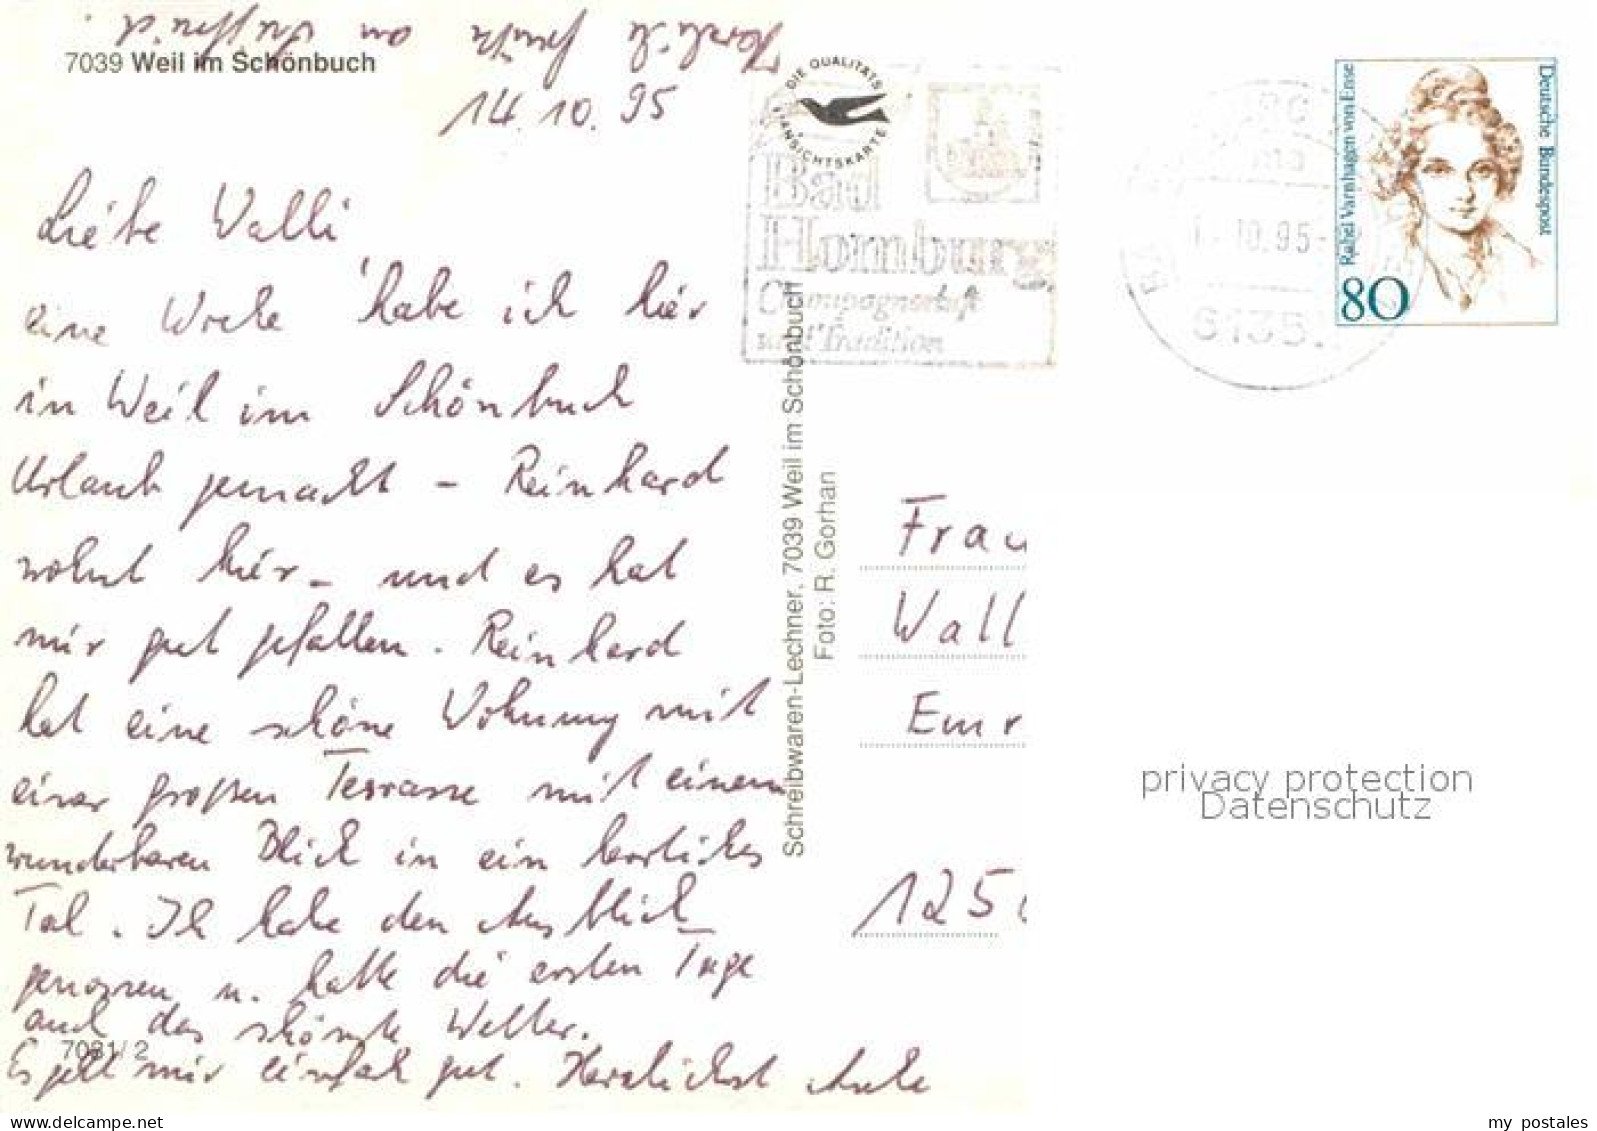 7039 Weil im Schönbuch
14.10.95
Liebe Walli,
eine Woche habe ich hier
in Weil im Schönbuch
Urlaub gemacht – Reinhard
wohnt hier – und es hat
mir gut gefallen. Reinhard
hat eine schöne Wohnung mit
einer großen Terrasse mit einem
wunderbaren Blick in ein herrliches
Tal. Ich habe den Ausblick
genossen u. hatte die ersten Tage
auch das schönste Wetter.
Es geht mir einfach gut. Herzlichst
Herzliche Grüße an
7081/2
DIE QUALITÄTS
ANSICHTSKARTE
Bad
Homburg
Champagnerluft
und Tradition
Schreibwaren-Lechner, 7039 Weil im Schönbuch
Foto: R. Gorhan
10.95
Deutsche Bundespost
Rahel Varnhagen von Ense
80
Frau
Wall
Emr
125
privacy protection
Datenschutz
delcampe.net
my_postales